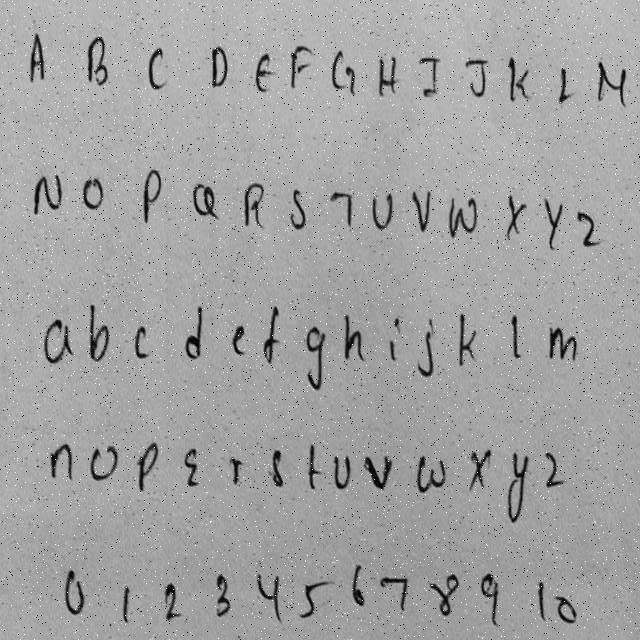 A B C D E F G H I J K L M
N O P Q R S T U V W X Y Z
a b c d e f g h i j k l m
n o p q r s t u v w x y z
0 1 2 3 4 5 6 7 8 9 10